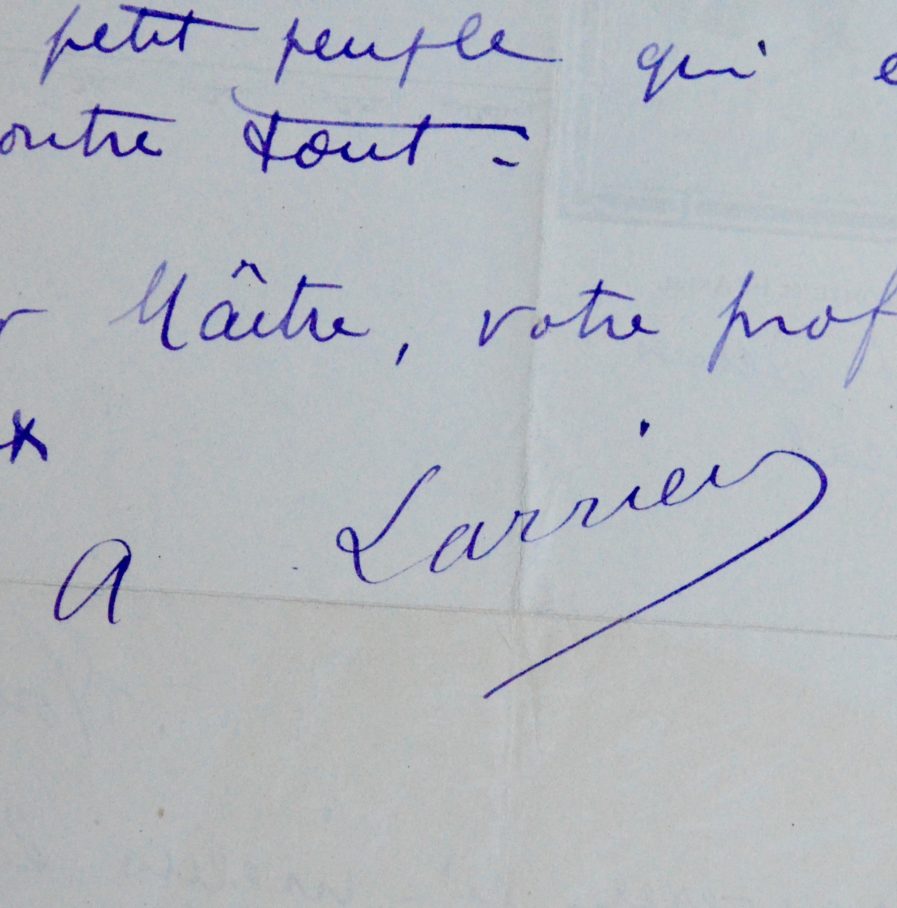 petit peuple qui e
ontre tout =
r Maître, votre prof
x
A Larrieu